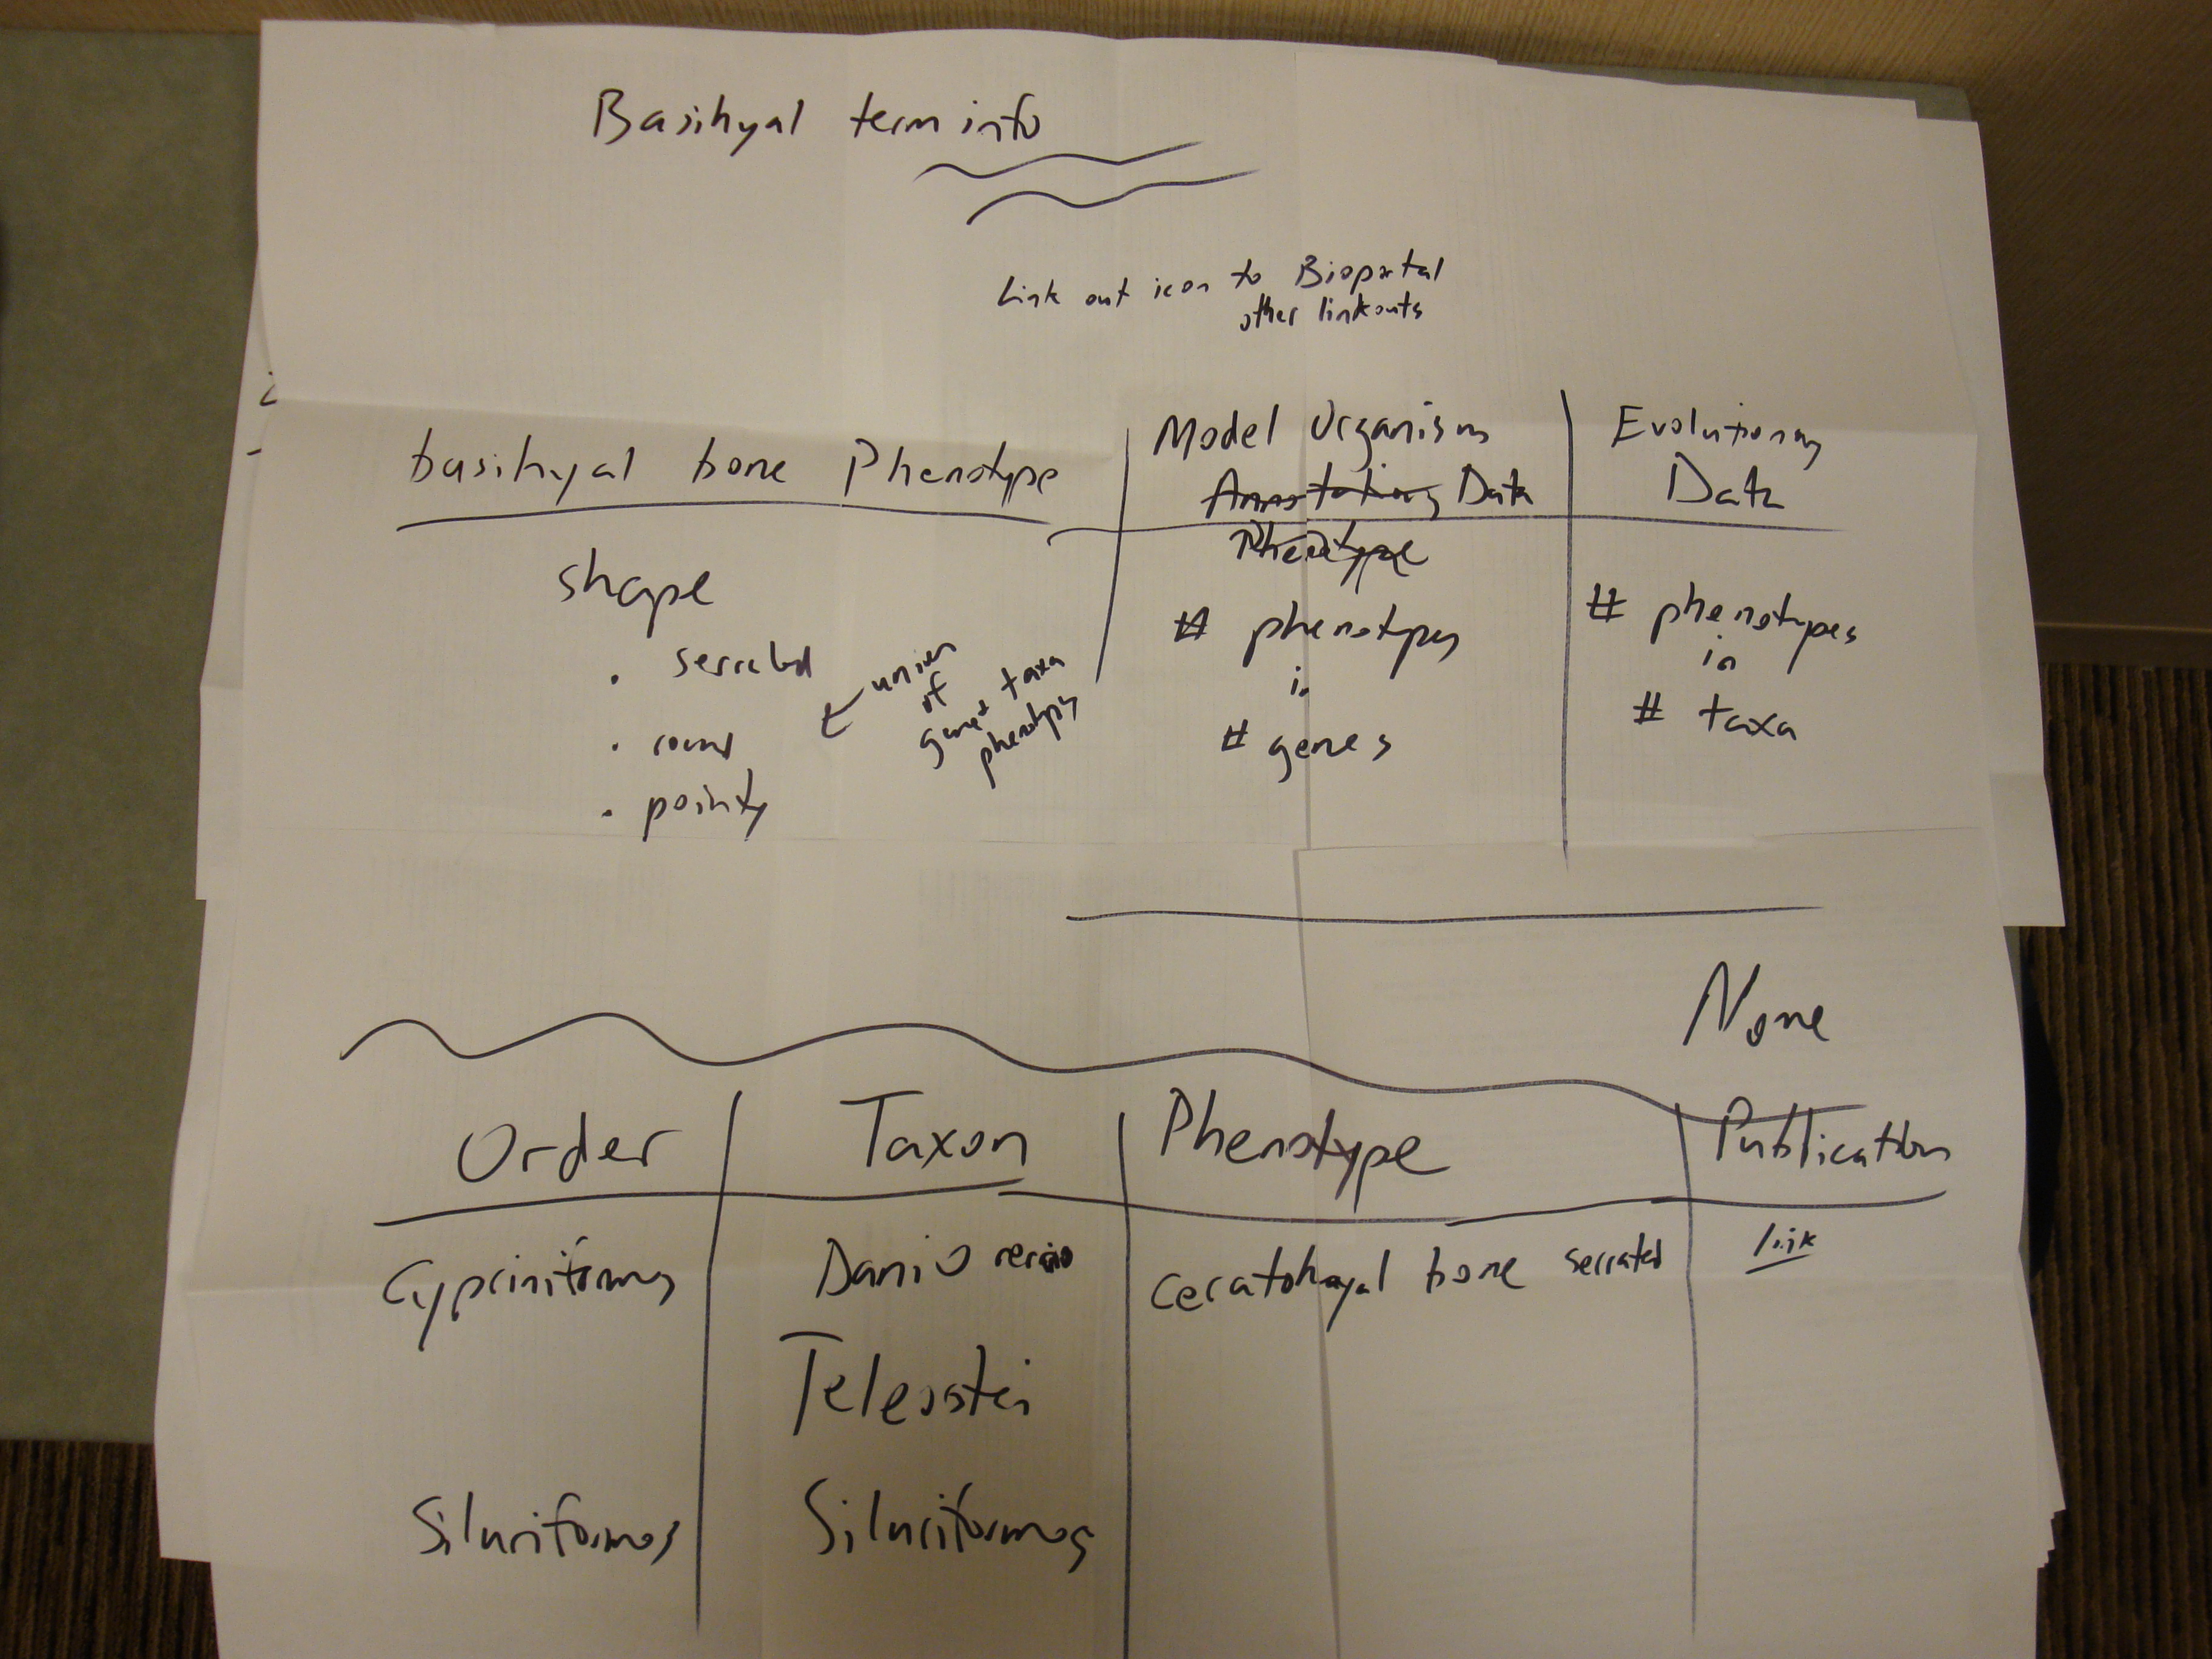 Basihyal term info
Link out icon to Bioportal
other linkouts
basihyal bone Phenotype
Model Organism
Annotations Data
Phenotype
Evolutionary
Data
shape
. serrated
. round
. pointy
union
of
gene + taxa
phenotypes
# phenotypes
in
# genes
# phenotypes
in
# taxa
None
Order
Taxon
Phenotype
Publication
Cypriniformes
Danio rerio
Ceratohyal bone serrated
link
Teleostei
Siluriformes
Siluriformes